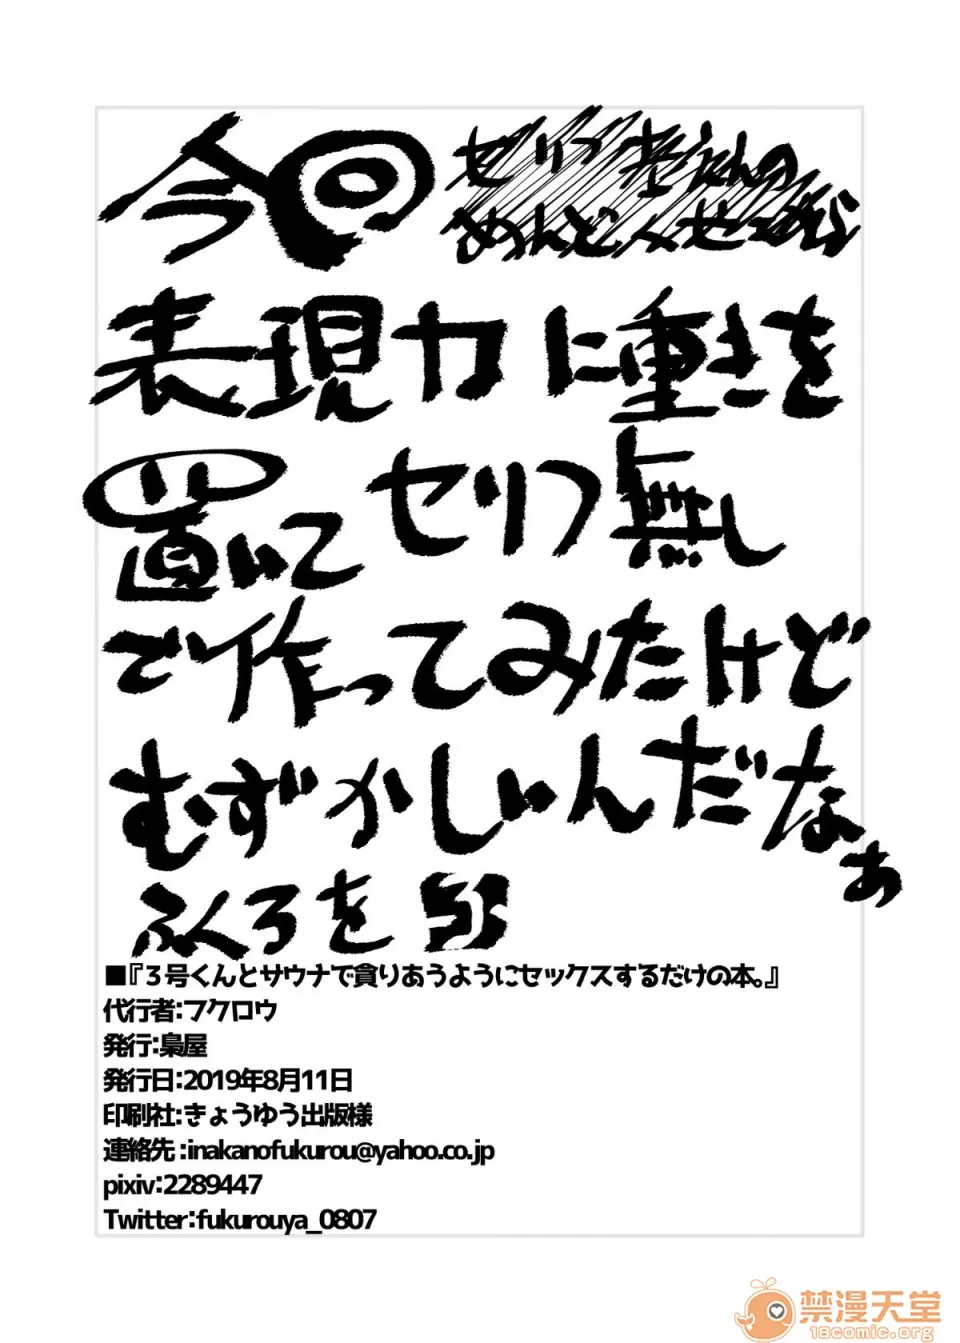 今回
セリフ考えんの
めんどくせーから
表現力に重きを
置いてセリフ無し
で作ってみたけど
むずかしいんだなぁ
ふくろを
■『３号くんとサウナで貪りあうようにセックスするだけの本。』
代行者:フクロウ
発行:梟屋
発行日:2019年8月11日
印刷社:きょうゆう出版様
連絡先:inakanofukurou@yahoo.co.jp
pixiv:2289447
Twitter:fukurouya_0807
禁漫天堂
18comic.org